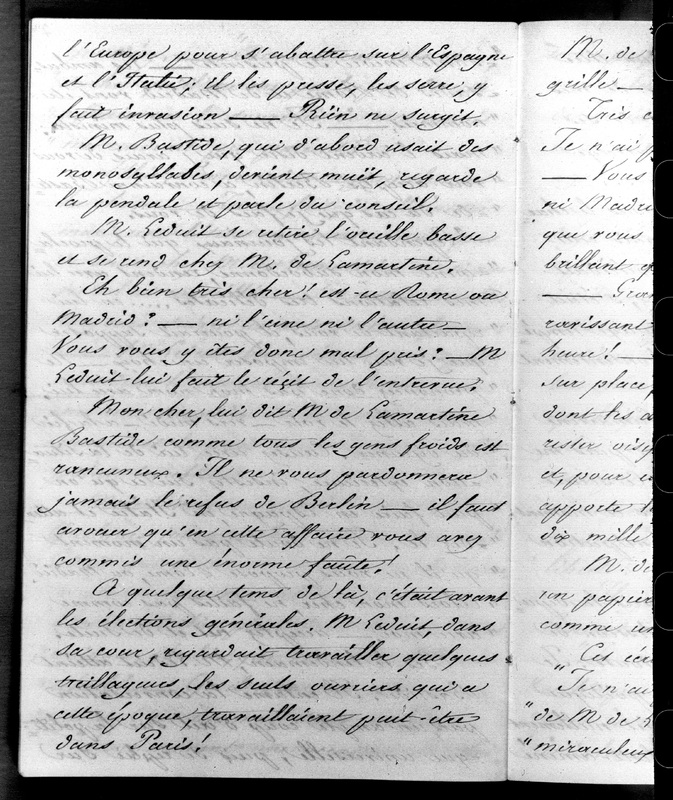 l'Europe pour s'abattre sur l'Espagne
et l'Italie; il les presse, les serre, y
fait invasion — Rien ne surgit.
M. Bastide, qui d'abord usait des
monosyllabes, devient muët, regarde
la pendale et parle du conseil.
M. Leduit se retire l'oreille basse
et se rend chez M. de Lamartine.
Eh bien très cher! est-ce Rome ou
Madrid? — ni l'une ni l'autre —
Vous vous y êtes donc mal pris? — M
Leduit lui fait le récit de l'entrevue.
Mon cher, lui dit M de Lamartine
Bastide comme tous les gens froids est
rancuneux. Il ne vous pardonnera
jamais le refus de Berlin — il faut
avouer qu'en cette affaire vous avez
commis une énorme faûte!
A quelque tems de là, c'était avant
les élections générales. M Leduit, dans
sa cour, regardait travailler quelques
treillageurs, les seuls ouvriers qui a
cette époque, travaillaient peut-être
dans Paris!
M. de
grille —
Très c
Je n'ai p
— Vous
ni Madri
que vous
brillant q
— Gran
ravissant
heure! —
sur place,
dont les a
rester oisi
et, pour c
apporte l
dix mille
M. de
un papier
comme un
Cet écr
"Je n'ai
"de M de L
"miraculeux